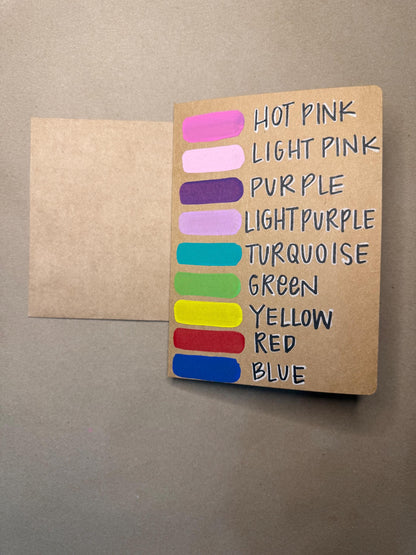 HOT PINK
LIGHT PINK
PURPLE
LIGHT PURPLE
TURQUOISE
GReeN
YELLOW
RED
BLUE